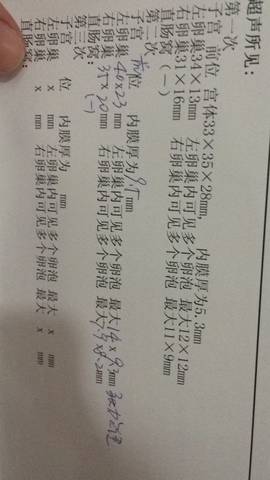 超声所见：
第一次
子宫 前位 宫体33×35×28mm， 内膜厚为5.3mm
左卵巢34×13mm 左卵巢内可见多个卵泡 最大12×12mm
右卵巢31×16mm 右卵巢内可见多个卵泡 最大11×9mm
直肠窝（—）
第二次
子宫 前位 内膜厚为9.7mm
左卵巢40x23mm 左卵巢内可见多个卵泡 最大14x9.3mm
右卵巢35x20mm 右卵巢内可见多个卵泡 最大
直肠窝：(一)
第三次
子宫 位 内膜厚为 mm
左卵巢 x mm 左卵巢内可见多个卵泡 最大 x mm
右卵巢 x mm 右卵巢内可见多个卵泡 最大 x mm
直肠窝：